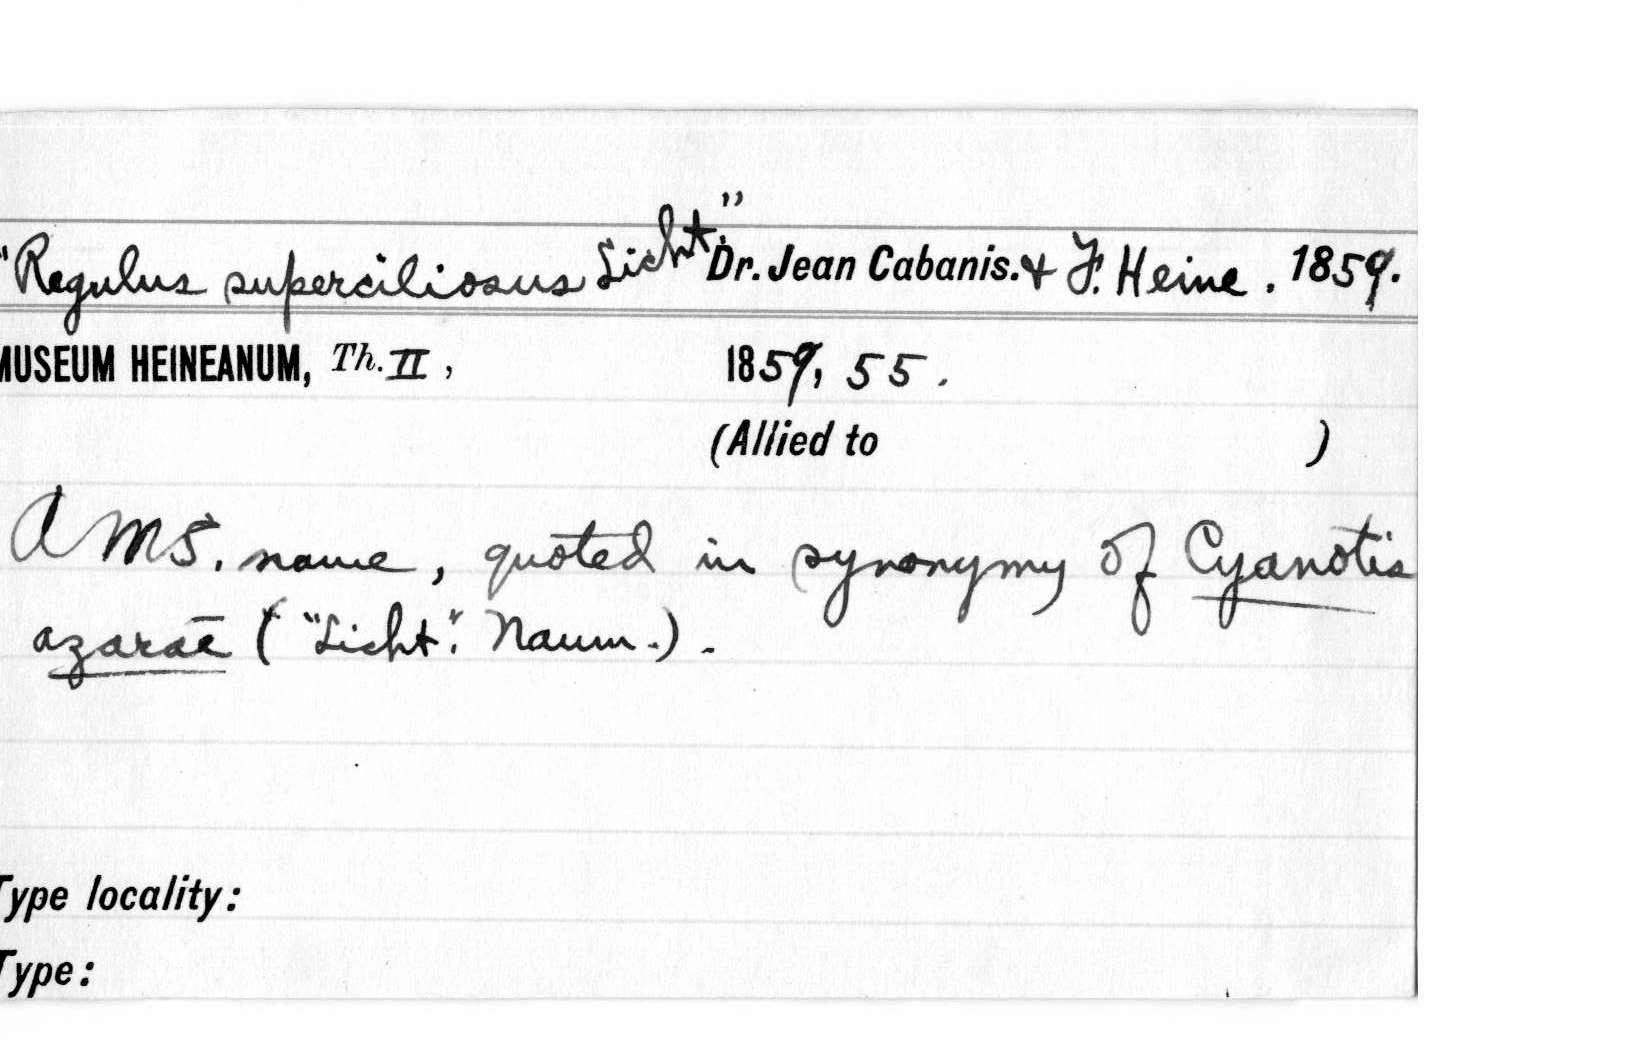 "Regulus superciliosus Licht." Dr. Jean Cabanis. & F. Heine. 1859.
MUSEUM HEINEANUM, Th. II, 1859, 55.
(Allied to )
A MS. name, quoted in synonymy of Cyanotis
azarae ("Licht". Naum.).
Type locality:
Type: